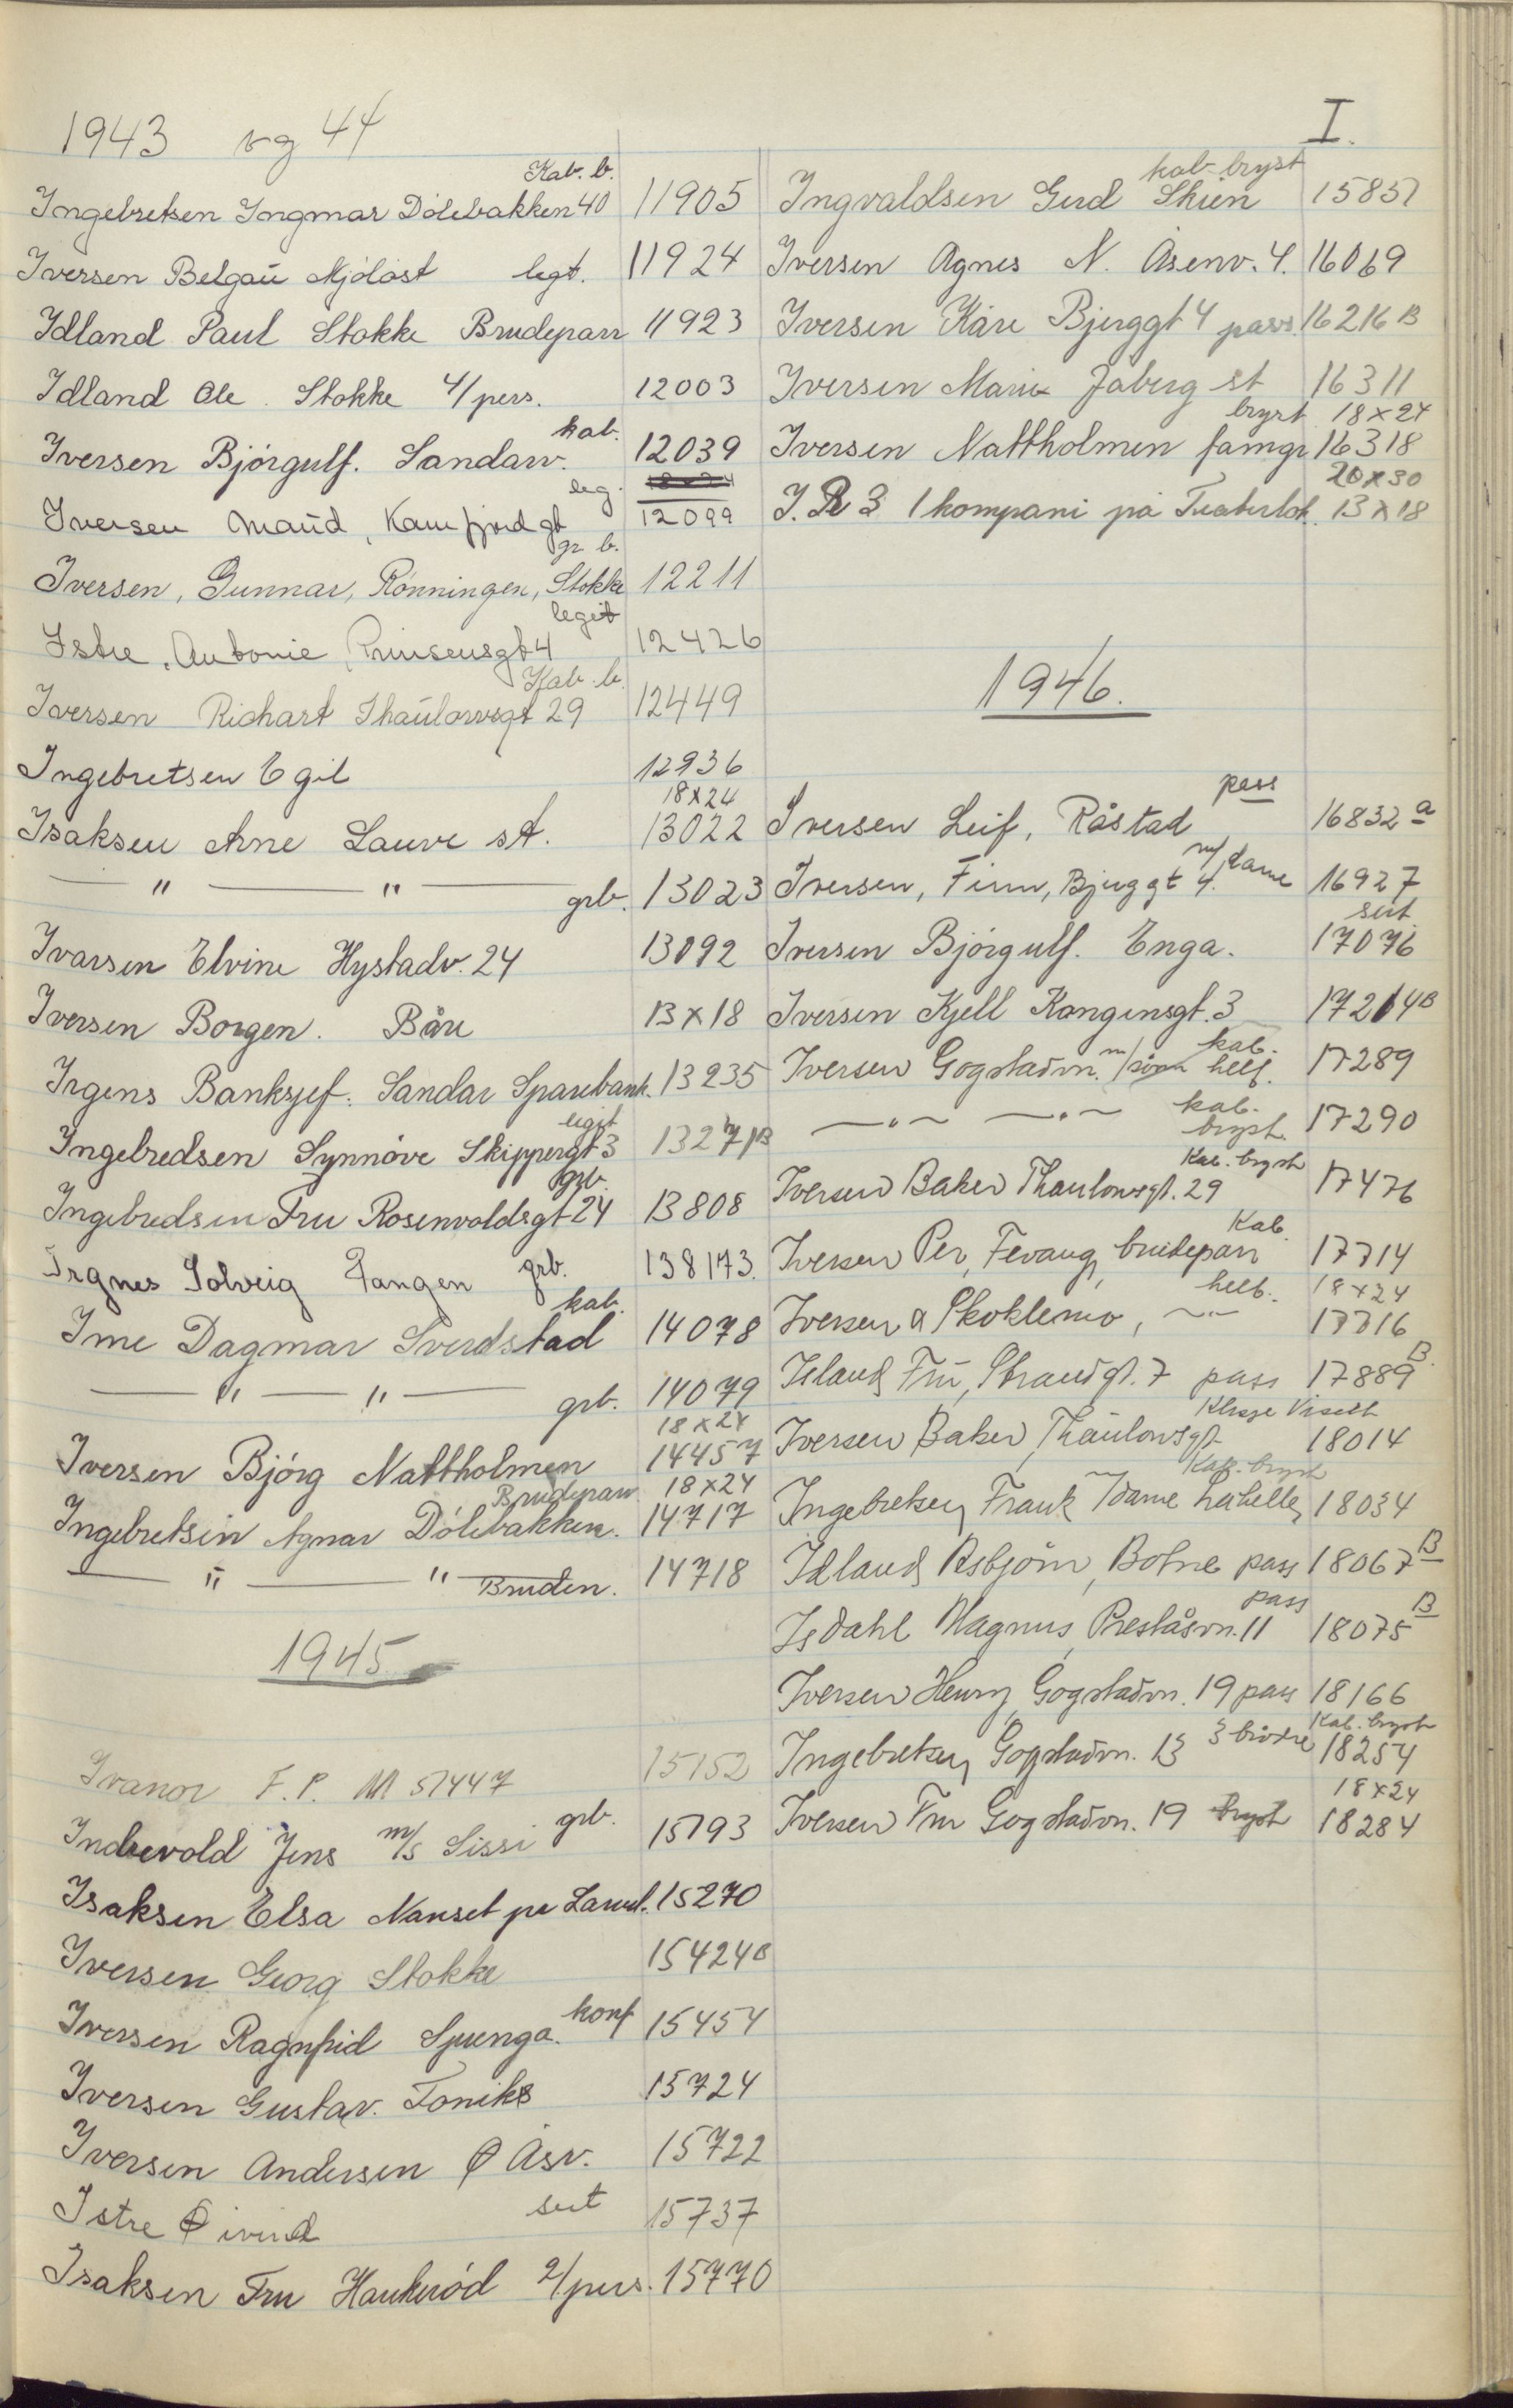 I.
1943 og 44
Kab. b.
Ingebretsen Ingmar Dölebakken 40 11905
Iversen Belgau Mjölöst legt. 11924
Idland Paul Stokke Brudeparr 11923
Idland Ole Stokke 4/pers. 12003
kab.
Iversen Björgulf. Sandarv. 12039
leg.
Iversen Maud, Kamfjordgt 12099
gr b.
Iversen, Gunnar, Rönningen, Stokke 12211
legit
Istre, Antonie, Prinsensgt 4 12426
Kab. b.
Iversen Richart Thaulowsgt 29 12449
Ingebretsen Egil 12936
18x24
Isaksen Arne Lauve st. 13022
— " — " — grb. 13023
Ivarsen Elvine Hystadv. 24 13092
Iversen Borgen. Båre 13x18
Irgens Banksjef. Sandar Sparebank. 13235
legit
Ingebredsen Synnöve Skippergt 3 13271B
grb.
Ingebredsen Fru Rosenvoldsgt 24 13808
Irgnes Solveig Tangen grb. 138173.
kab.
Ime Dagmar Sverdstad 14078
— " — " — grb. 14079
18x24
Iversen Björg Nattholmen 14457
Brudeparr 18x24
Ingebretsen Agnar Dölebakken. 14717
— " — " Bruden. 14718
1945
Ivanor F. P. M 51447 15152
Indrevold Jens m/s Sissi grb. 15193
Isaksen Elsa Nanset pr Larvik. 15270
Iversen Georg Stokke 15424B
Iversen Ragnfrid Spenga. konf 15454
Iversen Gustav. Foniks 15724
Iversen Andersen Ø Åsv. 15722
Istre Øivind seit 15737
Isaksen Fru Haukeröd 2/pers. 15770
kab-bryst
Ingvaldsen Gerd Skien 15851
Iversen Agnes N. Åsenv. 4. 16069
Iversen Kåre Bjerggt 4 pass. 16216B
Iversen Marie Jåberg st 16311
bryst 18x24
Iversen Nattholmen famgr 16318
20x30
I.R 3 1 kompani på Teaterlok. 13x18
1946.
pass
Iversen Leif, Råstad 16832 a
m/dame
Iversen, Finn, Bjerggt 4. 16927
seit
Iversen Björgulf. Enga. 17076
Iversen Kjell Kongensgt. 3 17214B
kab.
Iversen Gogstadvn. m/sönn helf. 17289
— " — — " — kab. bryst. 17290
Kab. bryst
Iversen Baker Thaulowsgt. 29 17476
Kab.
Iversen Per, Fevang, brudeparr 17714
helb. 18x24
Iversen & Skoklemo, — " — 17716
Island Fru, Strandgt. 7 pass 17889 B.
Iversen Baker, Thaulowsgt 18014
Kab. bryst
Ingebretsen Frank m/dame Labelle 18034
Idland Asbjörn, Botne pass 18067 B
pass
Isdahl Magnus, Preståsvn. 11 18075 B
Iversen Henry, Gogstadvn. 19 pass 18166
Kab. bryst
Ingebretsen Gogstadvn. 13 3 brödre 18254
18x24
Iversen Fru Gogstadvn. 19 bryst 18284